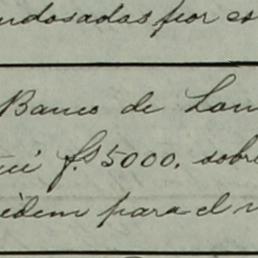 endosadas por es
Banco de Lon
£s 5000. sobre
idem para el